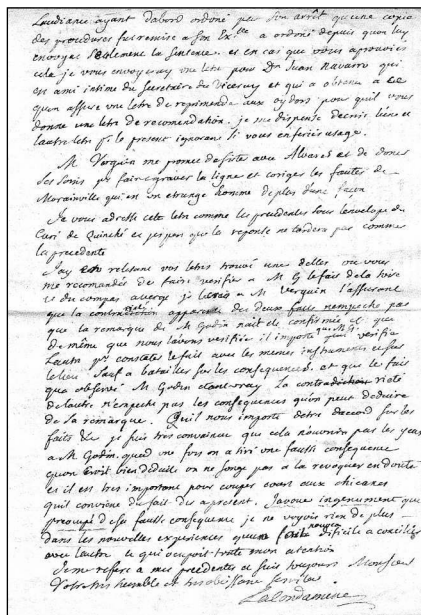 Laudiance ayant dabord ordoné par son arrêt qu'une copie
des procedures fut remise a son Ex.ce a ordoné depuis quon luy
envoyat seulement la sentence et en cas que vous aprouviez
cela je vous envoyeray une letre pour Dn Juan Navarro qui
est ami intime du Secretaire du Viceroy et qui a obtenu a ce
quon assure une letre de reprimende aux oydors pour quil vous
donne une letre de recomendation. je me dispense decrire lune et
lautre letre pr. le present ignorant si vous en feriés usage.
M. Verguin me promet de fiste avec Alvares et de donner
ses soins pr. faire graver la ligne et coriger les fautes de
Morainville qui est un etrange homme de plus dune façon
Je vous adresse cete letre comme les precedentes sous lenvelope du
Curé de Quinché et jespere que la reponse ne tardera pas comme
la precedente
Jay en relisant vos letres trouvé une delles ou vous
me recomandés de faire verifier a M G le fait de la toise
et du compas auberge je lecris a M Verguin l'assurant
que la contradiction apparente des deux faits nempeche pas
que la remarque de M. Godin nait eté confirmée et que
de meme que nous lavons verifiée il importe que M. G. verifie
lautre pr. constater le fait avec les memes instruments et sur
le lieu sauf a batailler sur les consequences et que le fait
qua observé M. Godin etant vray la contradictoire
de lautre n'empeche pas les consequences quon peut deduire
de sa remarque. Quil nous importe detre daccord sur les
faits &c je suis tres convaincu que cela nouvrira pas les yeux
a M Godin. quand une fois on a tiré une fausse consequence
quon croit bien deduite on ne songe pas a la revoquer en doute
et il est tres important pour couper court aux chicanes
quil convienne du fait des a present. Javoue ingenument que
preocupé de sa fausse consequence je ne voyois rien de plus
dans les nouvelles experiences quune
dificile a concilier
avec lautre ce qui ocupoit toute mon atention
Je me refere a mes precedentes et suis toujours Monsieur
Votre tres humble et tres obeissant serviteur
La Condamine